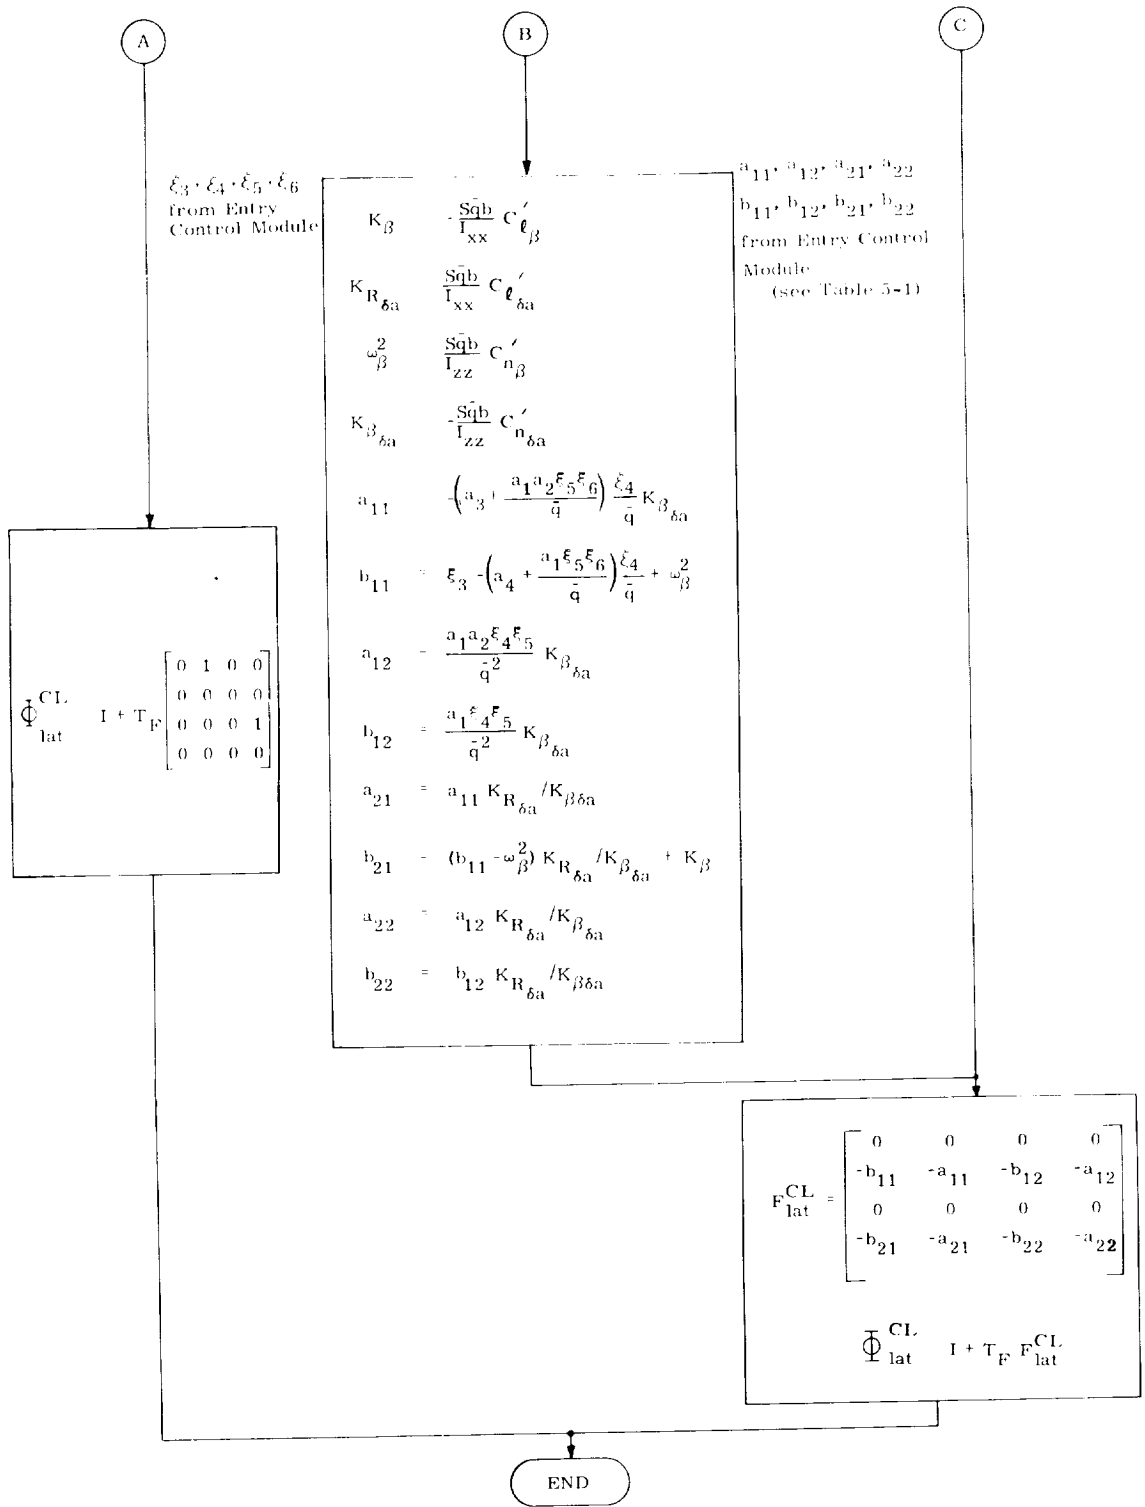 A
B
C
ξ3, ξ4, ξ5, ξ6
from Entry
Control Module
a11, a12, a21, a22
b11, b12, b21, b22
from Entry Control
Module
(see Table 5-1)
K_β -Sq̄b/I_xx C_ℓ′_β
K_R_δa Sq̄b/I_xx C_ℓ′_δa
ω_β^2 Sq̄b/I_zz C_n′_β
K_β_δa -Sq̄b/I_zz C_n′_δa
a11 -(a3 + a1a2ξ5ξ6/q̄) ξ4/q̄ K_β_δa
b11 = ξ3 -(a4 + a1ξ5ξ6/q̄) ξ4/q̄ + ω_β^2
a12 = a1a2ξ4ξ5/q̄^2 K_β_δa
b12 = a1ξ4ξ5/q̄^2 K_β_δa
a21 = a11 K_R_δa/K_βδa
b21 = (b11 - ω_β^2) K_R_δa/K_β_δa + K_β
a22 = a12 K_R_δa/K_β_δa
b22 = b12 K_R_δa/K_βδa
Φ_lat^CL I + T_F
0 1 0 0
0 0 0 0
0 0 0 1
0 0 0 0
F_lat^CL =
0 0 0 0
-b11 -a11 -b12 -a12
0 0 0 0
-b21 -a21 -b22 -a22
Φ_lat^CL I + T_F F_lat^CL
END